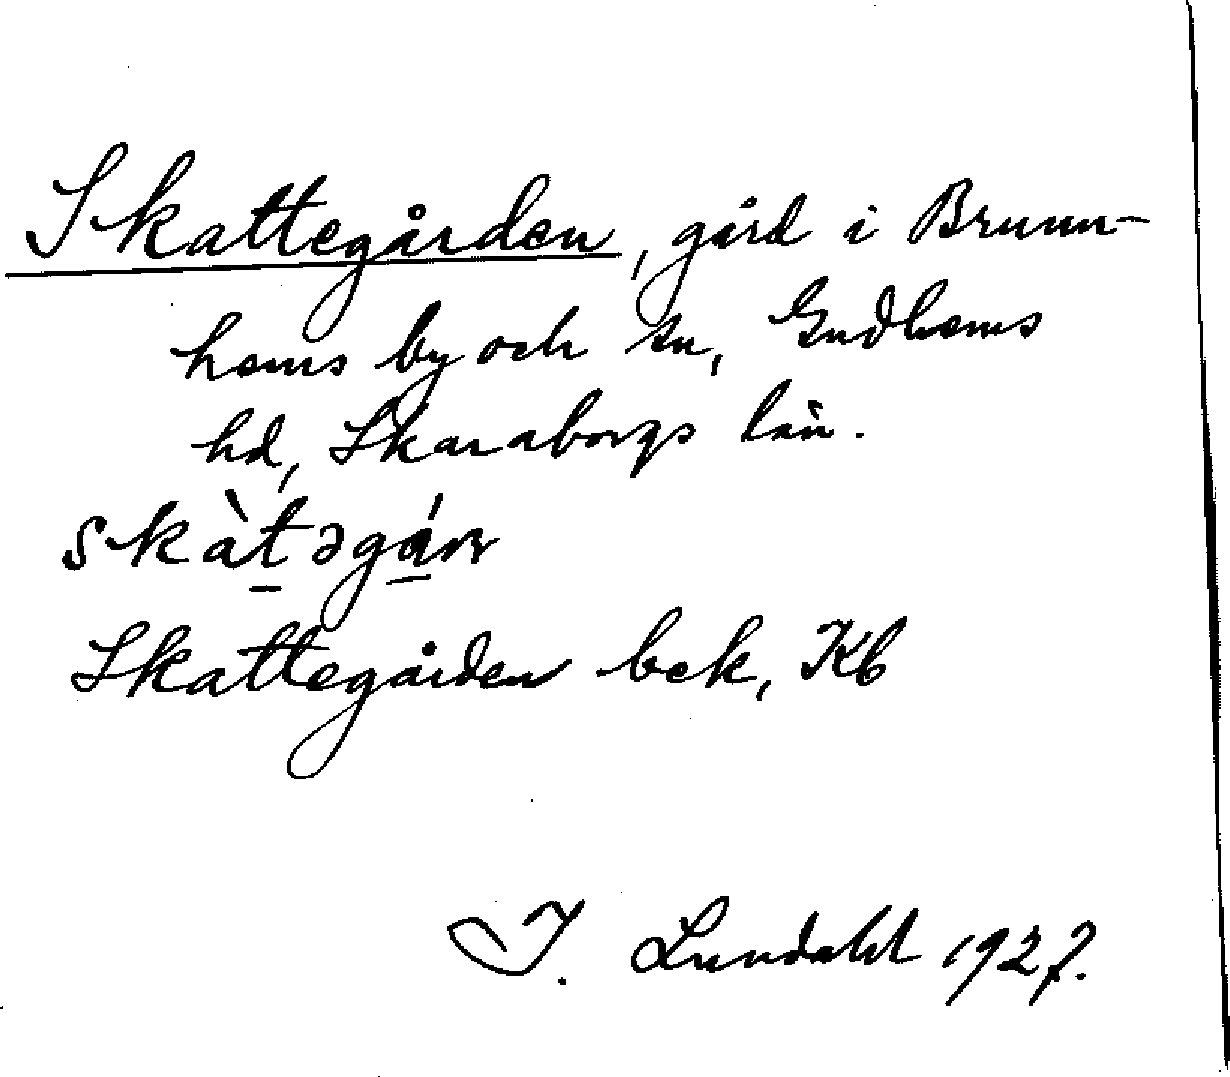 Skattegården, gård i Brunn-
hems by och sn, Gudhems
hd, Skaraborgs län.
skàt̲əgá̲rn
Skattegården bek, Kb
I. Lundahl 1927.